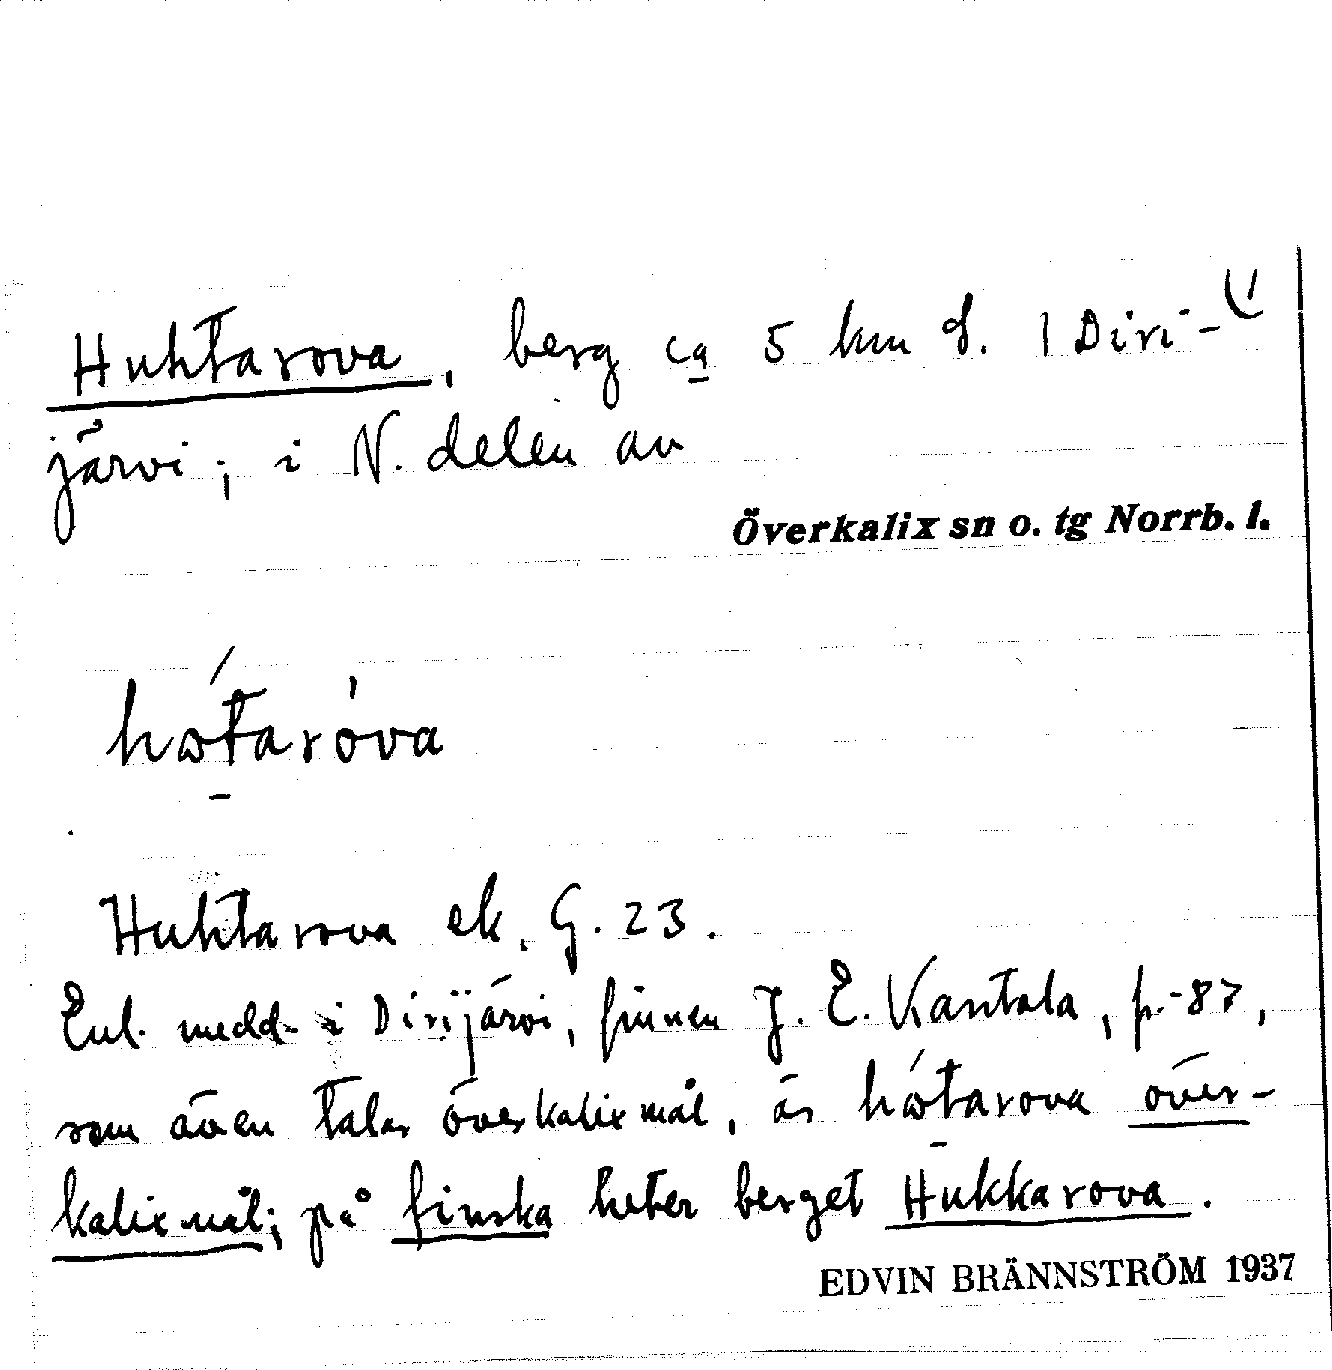 Huhtarova, berg ca 5 km S. l Diri-
järvi; i N. delen av
Överkalix sn o. tg Norrb. l.
hótaróva
Huhtarova ek. G. 23.
Enl. medd. i Dirijärvi, finnen J. E. Kantola, f. -87,
som även talar överkalixmål, är hótarova över-
kalixmål; på finska heter berget Hukkarova.
EDVIN BRÄNNSTRÖM 1937